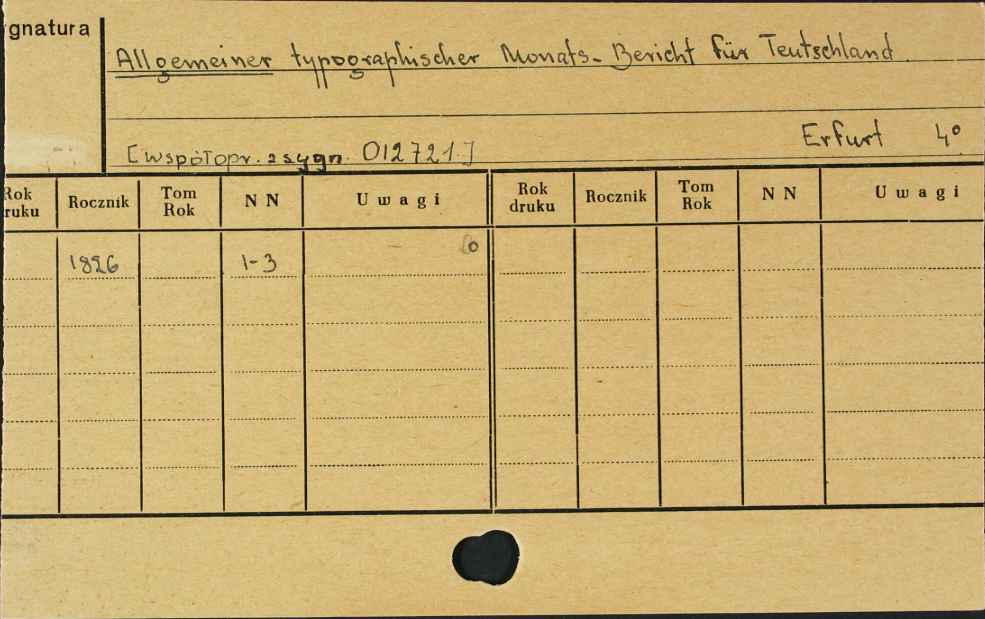 gnatura
Allgemeiner typographischer Monats-Bericht für Teutschland
Erfurt 4°
[współopr. z sygn. 012721.]
Rok druku Rocznik Tom Rok N N Uwagi Rok druku Rocznik Tom Rok N N Uwagi
1826 1-3